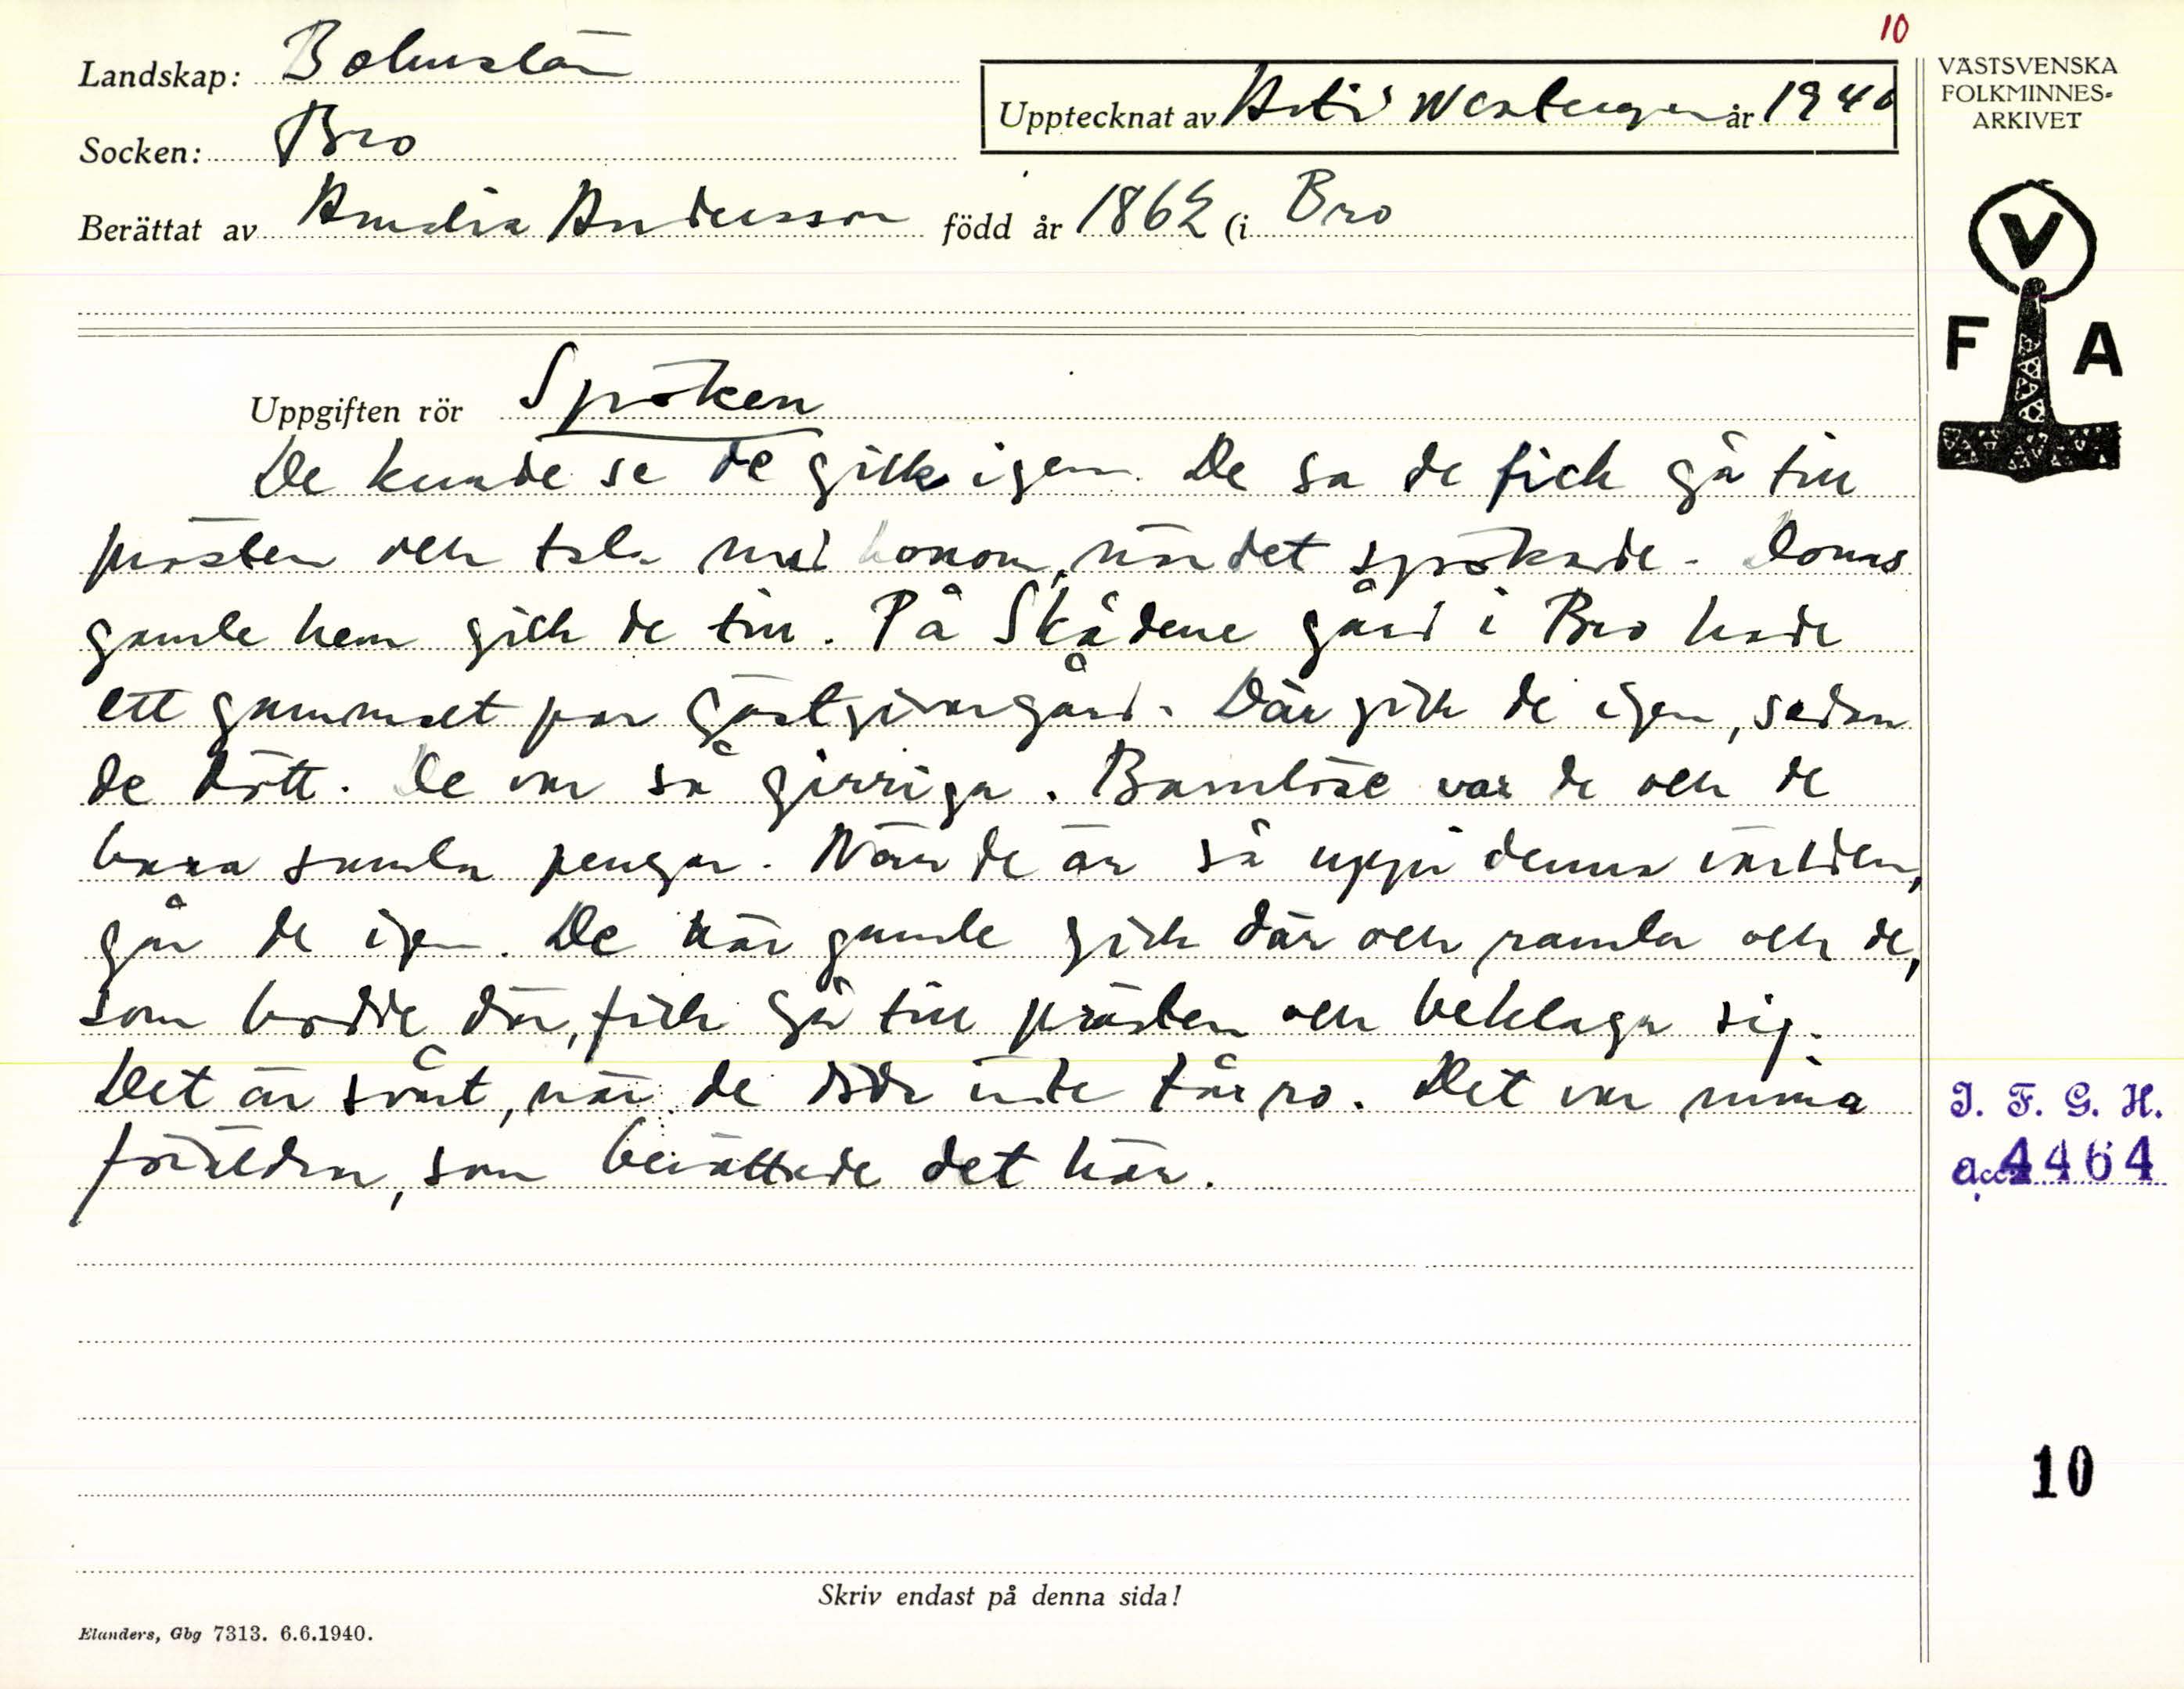 10
Landskap: Bohuslän
Upptecknat av Westergren år 1940
VÄSTSVENSKA
FOLKMINNES-
ARKIVET
Socken: Bro
Berättat av Amalia Andersson född år 1862 (i Bro
V
F A
Uppgiften rör Spöken
De kunde se de gick igen. De sa de fick gå till
prästen och tala med honom, när det spökade. Doms
gamle hem gick de till. På Skådene gård i Bro hade
ett gammalt par gästgivargård. Där gick de igen, sedan
de dött. De var så girriga. Barnlöse var de och de
bara samla pengar. När de är så uppi denna världen,
går de igen. De här gamle gick där och ramla och de,
som bodde där, fick gå till prästen och beklaga sig.
Det är svårt, när de döde inte får ro. Det var mina
föräldrar, som berättade det här.
I. F. G. H.
acc 4464
10
Skriv endast på denna sida!
Elanders, Gbg 7313. 6.6.1940.